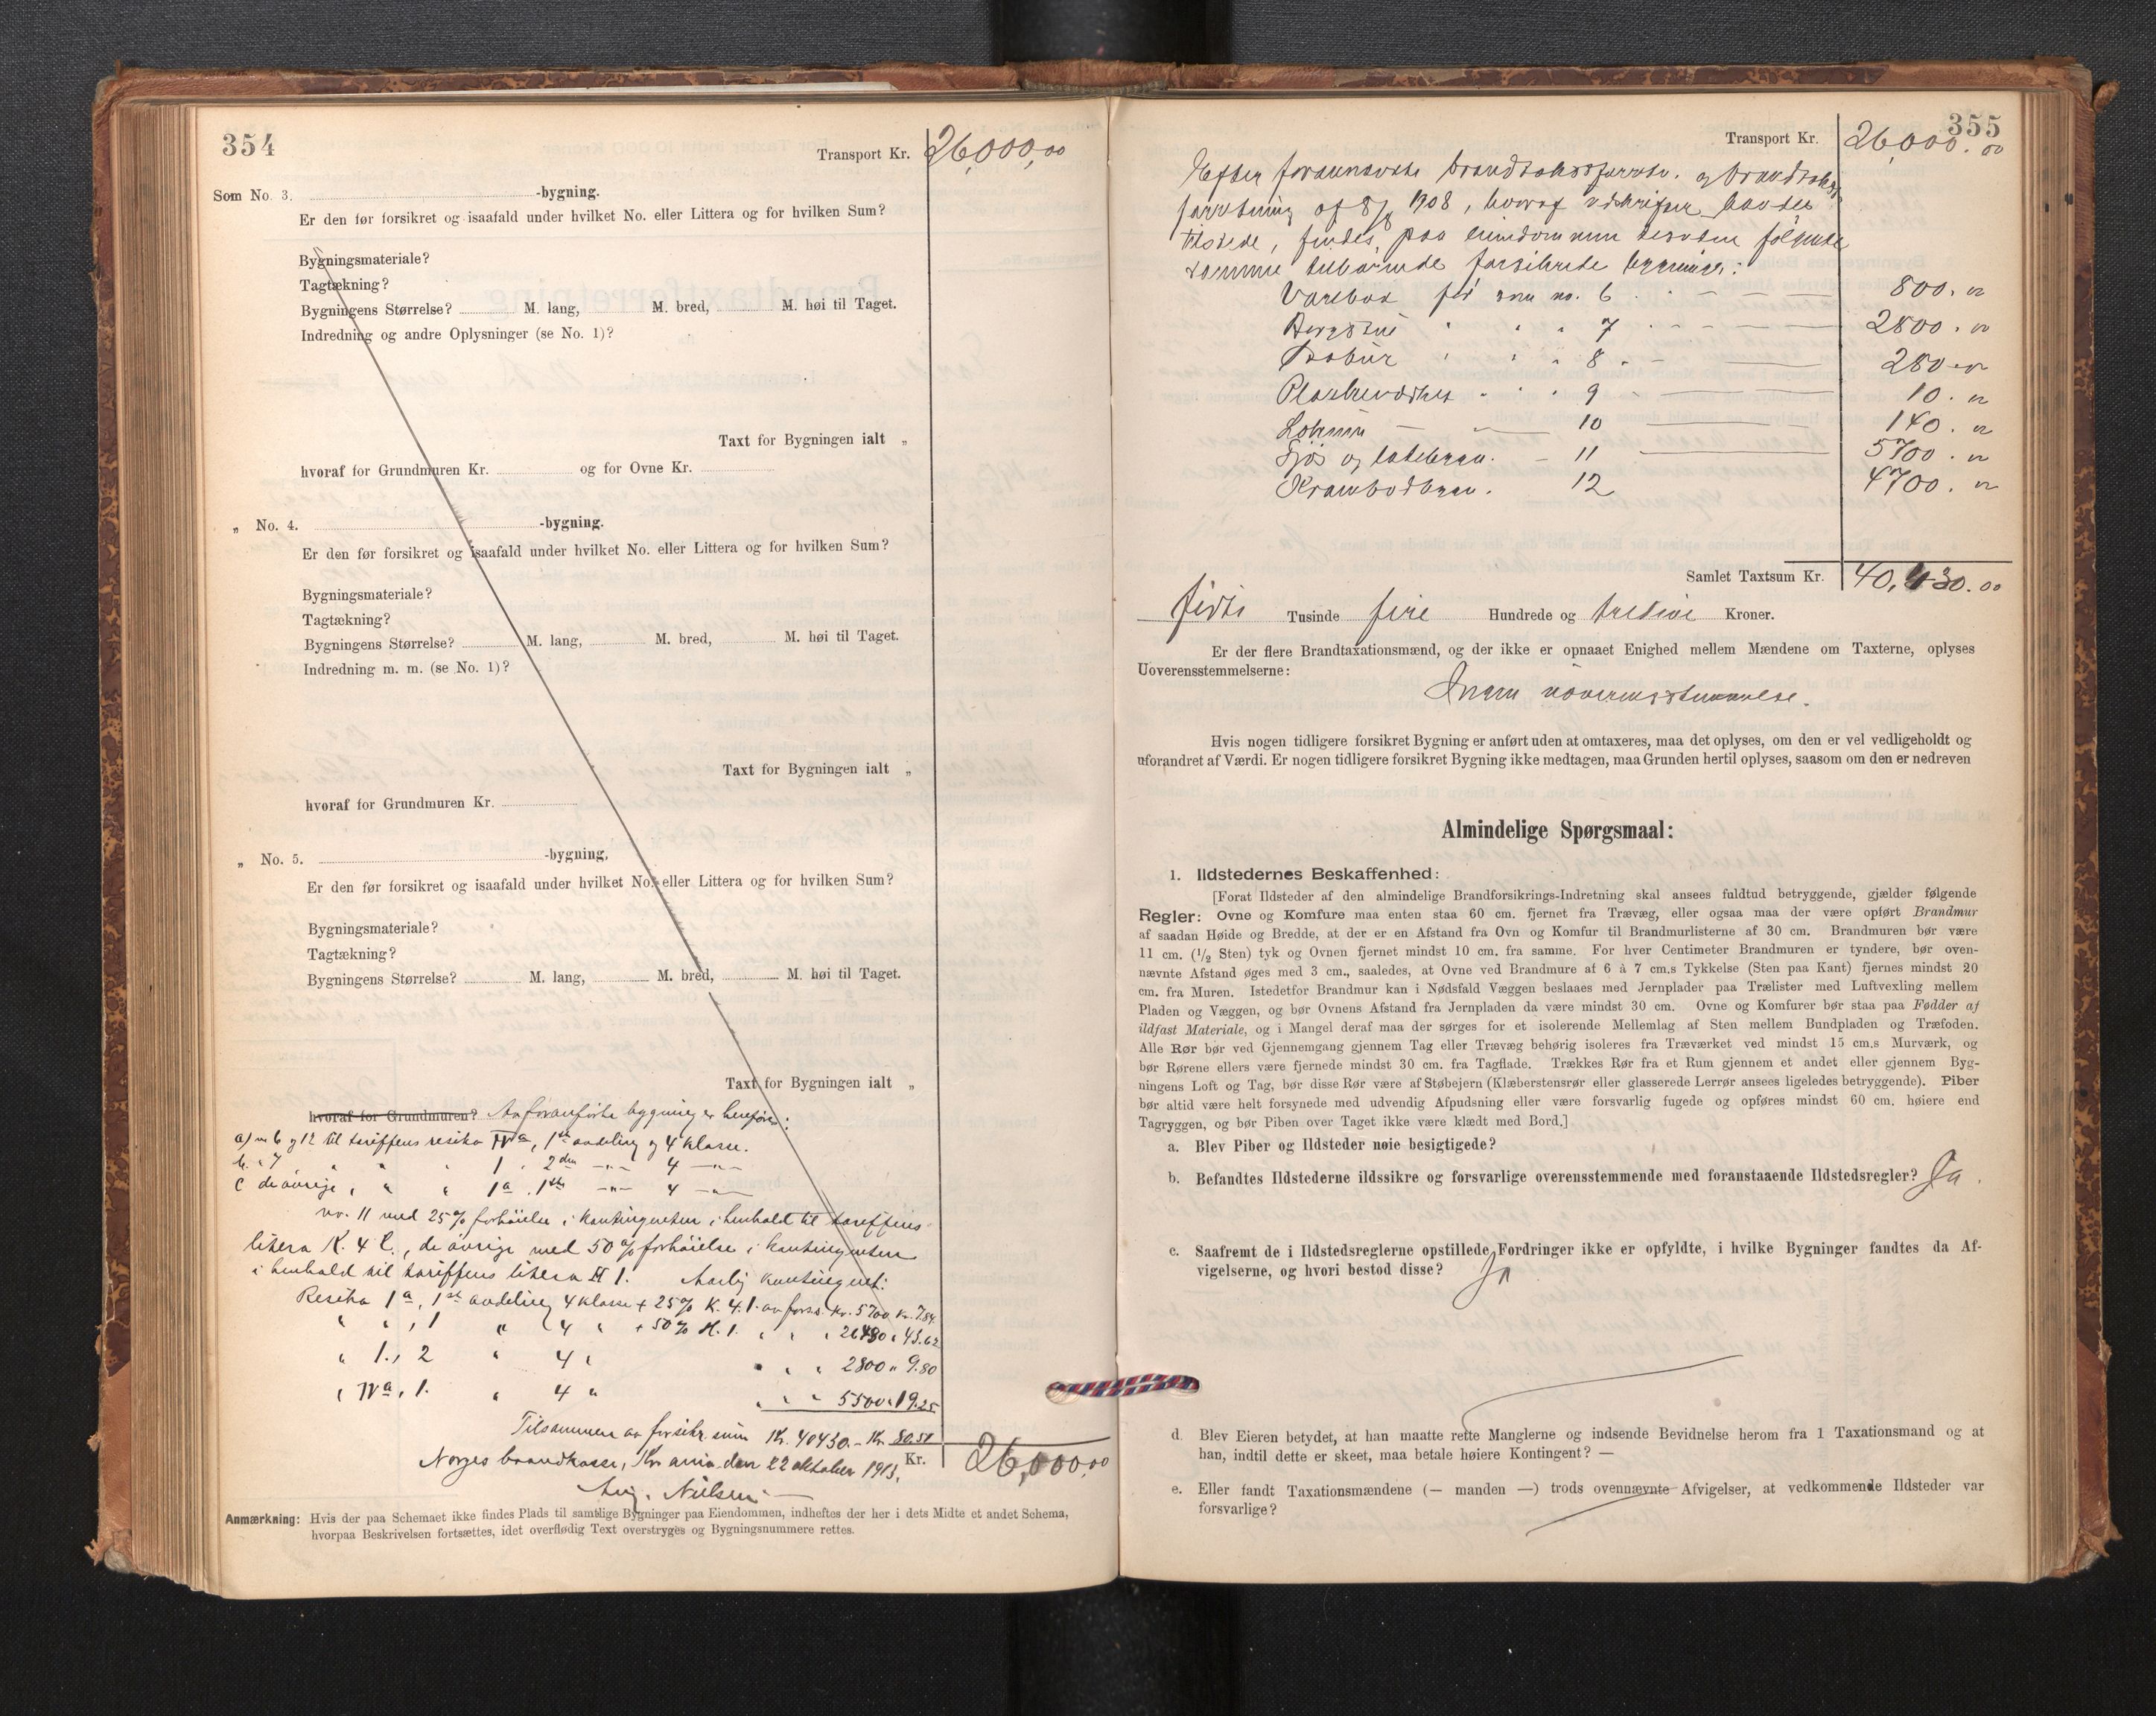 354
Transport Kr. 26,000,00
Som No. 3. -bygning.
Er den før forsikret og isaafald under hvilket No. eller Littera og for hvilken Sum?
Bygningsmateriale?
Tagtækning?
Bygningens Størrelse? M. lang, M. bred, M. høi til Taget.
Indredning og andre Oplysninger (se No. 1)?
Taxt for Bygningen ialt „
hvoraf for Grundmuren Kr. og for Ovne Kr.
„ No. 4. -bygning.
Er den før forsikret og isaafald under hvilket No. eller Littera og for hvilken Sum?
Bygningsmateriale?
Tagtækning?
Bygningens Størrelse? M. lang, M. bred, M. høi til Taget.
Indredning m. m. (se No. 1)?
Taxt for Bygningen ialt „
hvoraf for Grundmuren Kr.
„ No. 5. -bygning.
Er den før forsikret og isaafald under hvilket No. eller Littera og for hvilken Sum?
Bygningsmateriale?
Tagtækning?
Bygningens Størrelse? M. lang, M. bred, M. høi til Taget.
Taxt for Bygningen ialt „
hvoraf for Grundmuren? Av foranførte bygning er henført:
a) no 6 og 12 til tariffens resiko IVa, 1ste avdeling og 4 klasse.
b. " 7 " " " 1 " 2den —"— 4 —"—
c de øvrige " " " 1a . 1ste —"— 4 —"—
no. 11 med 25% forhøielse i kontingenten i henhold til tariffens
litera K. 4 l., de øvrige med 50% forhøielse i kontingenten
i henhold til tariffens litera H 1. Aarlig kontingent:
Resiko 1a, 1ste avdeling 4 klasse + 25% K. 4. 1. av fors.s. kr. 5700 kr. 7.84.
" " , 1 " 4 " + 50% H. 1. " " " 26430 " 43.62
" 1., 2 " 4 " " " " 2800 " 9.80
" IVa, 1. " 4 " " " " 5500 " 19.25
Tilsammen av forsikr. sum Kr. 40430.– Kr. 80.51
Norges brandkasse, Kr.ania den 22 oktober 1913.
Kr. 26,000,00
Aug. Nielsen
Anmærkning: Hvis der paa Schemaet ikke findes Plads til samtlige Bygninger paa Eiendommen, indheftes der her i dets Midte et andet Schema,
hvorpaa Beskrivelsen fortsættes, idet overflødig Text overstryges og Bygningsnummere rettes.
355
Transport Kr. 26,000.00
Efter forannævnte brandtakstforretn. og brandtakst-
forretning af 8/8 1908, hvoraf udskrift havdes
tilstede, findes paa eiendommen desuden følgende
samme tilhørende forsikrede bygninger:
før som no. 6 800. "
" " " 7 2800. "
" " " 8 280. "
" " 9 10. "
10 140. "
Fjøs og ladebygn. – 11 5700. "
Krambodbygn. 12 4700. "
Samlet Taxtsum Kr. 40,430.00
firti Tusinde fire Hundrede og tredive Kroner.
Er der flere Brandtaxationsmænd, og der ikke er opnaaet Enighed mellem Mændene om Taxterne, oplyses
Uoverensstemmelserne:
Ingen uoverensstemmelse.
Hvis nogen tidligere forsikret Bygning er anført uden at omtaxeres, maa det oplyses, om den er vel vedligeholdt og
uforandret af Værdi. Er nogen tidligere forsikret Bygning ikke medtagen, maa Grunden hertil oplyses, saasom om den er nedreven
Almindelige Spørgsmaal:
1. Ildstedernes Beskaffenhed:
[Forat Ildsteder af den almindelige Brandforsikrings-Indretning skal ansees fuldtud betryggende, gjælder følgende
Regler: Ovne og Komfure maa enten staa 60 cm. fjernet fra Trævæg, eller ogsaa maa der være opført Brandmur
af saadan Høide og Bredde, at der er en Afstand fra Ovn og Komfur til Brandmurlisterne af 30 cm. Brandmuren bør være
11 cm. (1/2 Sten) tyk og Ovnen fjernet mindst 10 cm. fra samme. For hver Centimeter Brandmuren er tyndere, bør oven-
nævnte Afstand øges med 3 cm., saaledes, at Ovne ved Brandmure af 6 à 7 cm.s Tykkelse (Sten paa Kant) fjernes mindst 20
cm. fra Muren. Istedetfor Brandmur kan i Nødsfald Væggen beslaaes med Jernplader paa Trælister med Luftvexling mellem
Pladen og Væggen, og bør Ovnens Afstand fra Jernpladen da være mindst 30 cm. Ovne og Komfurer bør staa paa Fødder af
ildfast Materiale, og i Mangel deraf maa der sørges for et isolerende Mellemlag af Sten mellem Bundpladen og Træfoden.
Alle Rør bør ved Gjennemgang gjennem Tag eller Trævæg behørig isoleres fra Træværket ved mindst 15 cm.s Murværk, og
bør Rørene ellers være fjernede mindst 30 cm. fra Tagflade. Trækkes Rør fra et Rum gjennem et andet eller gjennem Byg-
ningens Loft og Tag, bør disse Rør være af Støbejern (Klæberstensrør eller glasserede Lerrør ansees ligeledes betryggende). Piber
bør altid være helt forsynede med udvendig Afpudsning eller være forsvarlig fugede og opføres mindst 60 cm. høiere end
Tagryggen, og bør Piben over Taget ikke være klædt med Bord.]
a. Blev Piber og Ildsteder nøie besigtigede?
b. Befandtes Ildstederne ildssikre og forsvarlige overensstemmende med foranstaaende Ildstedsregler? Ja.
c. Saafremt de i Ildstedsreglerne opstillede Fordringer ikke er opfyldte, i hvilke Bygninger fandtes da Af-
vigelserne, og hvori bestod disse? Ja
d. Blev Eieren betydet, at han maatte rette Manglerne og indsende Bevidnelse herom fra 1 Taxationsmand og at
han, indtil dette er skeet, maa betale høiere Kontingent? —
e. Eller fandt Taxationsmændene (— manden —) trods ovennævnte Afvigelser, at vedkommende Ildsteder var
forsvarlige?